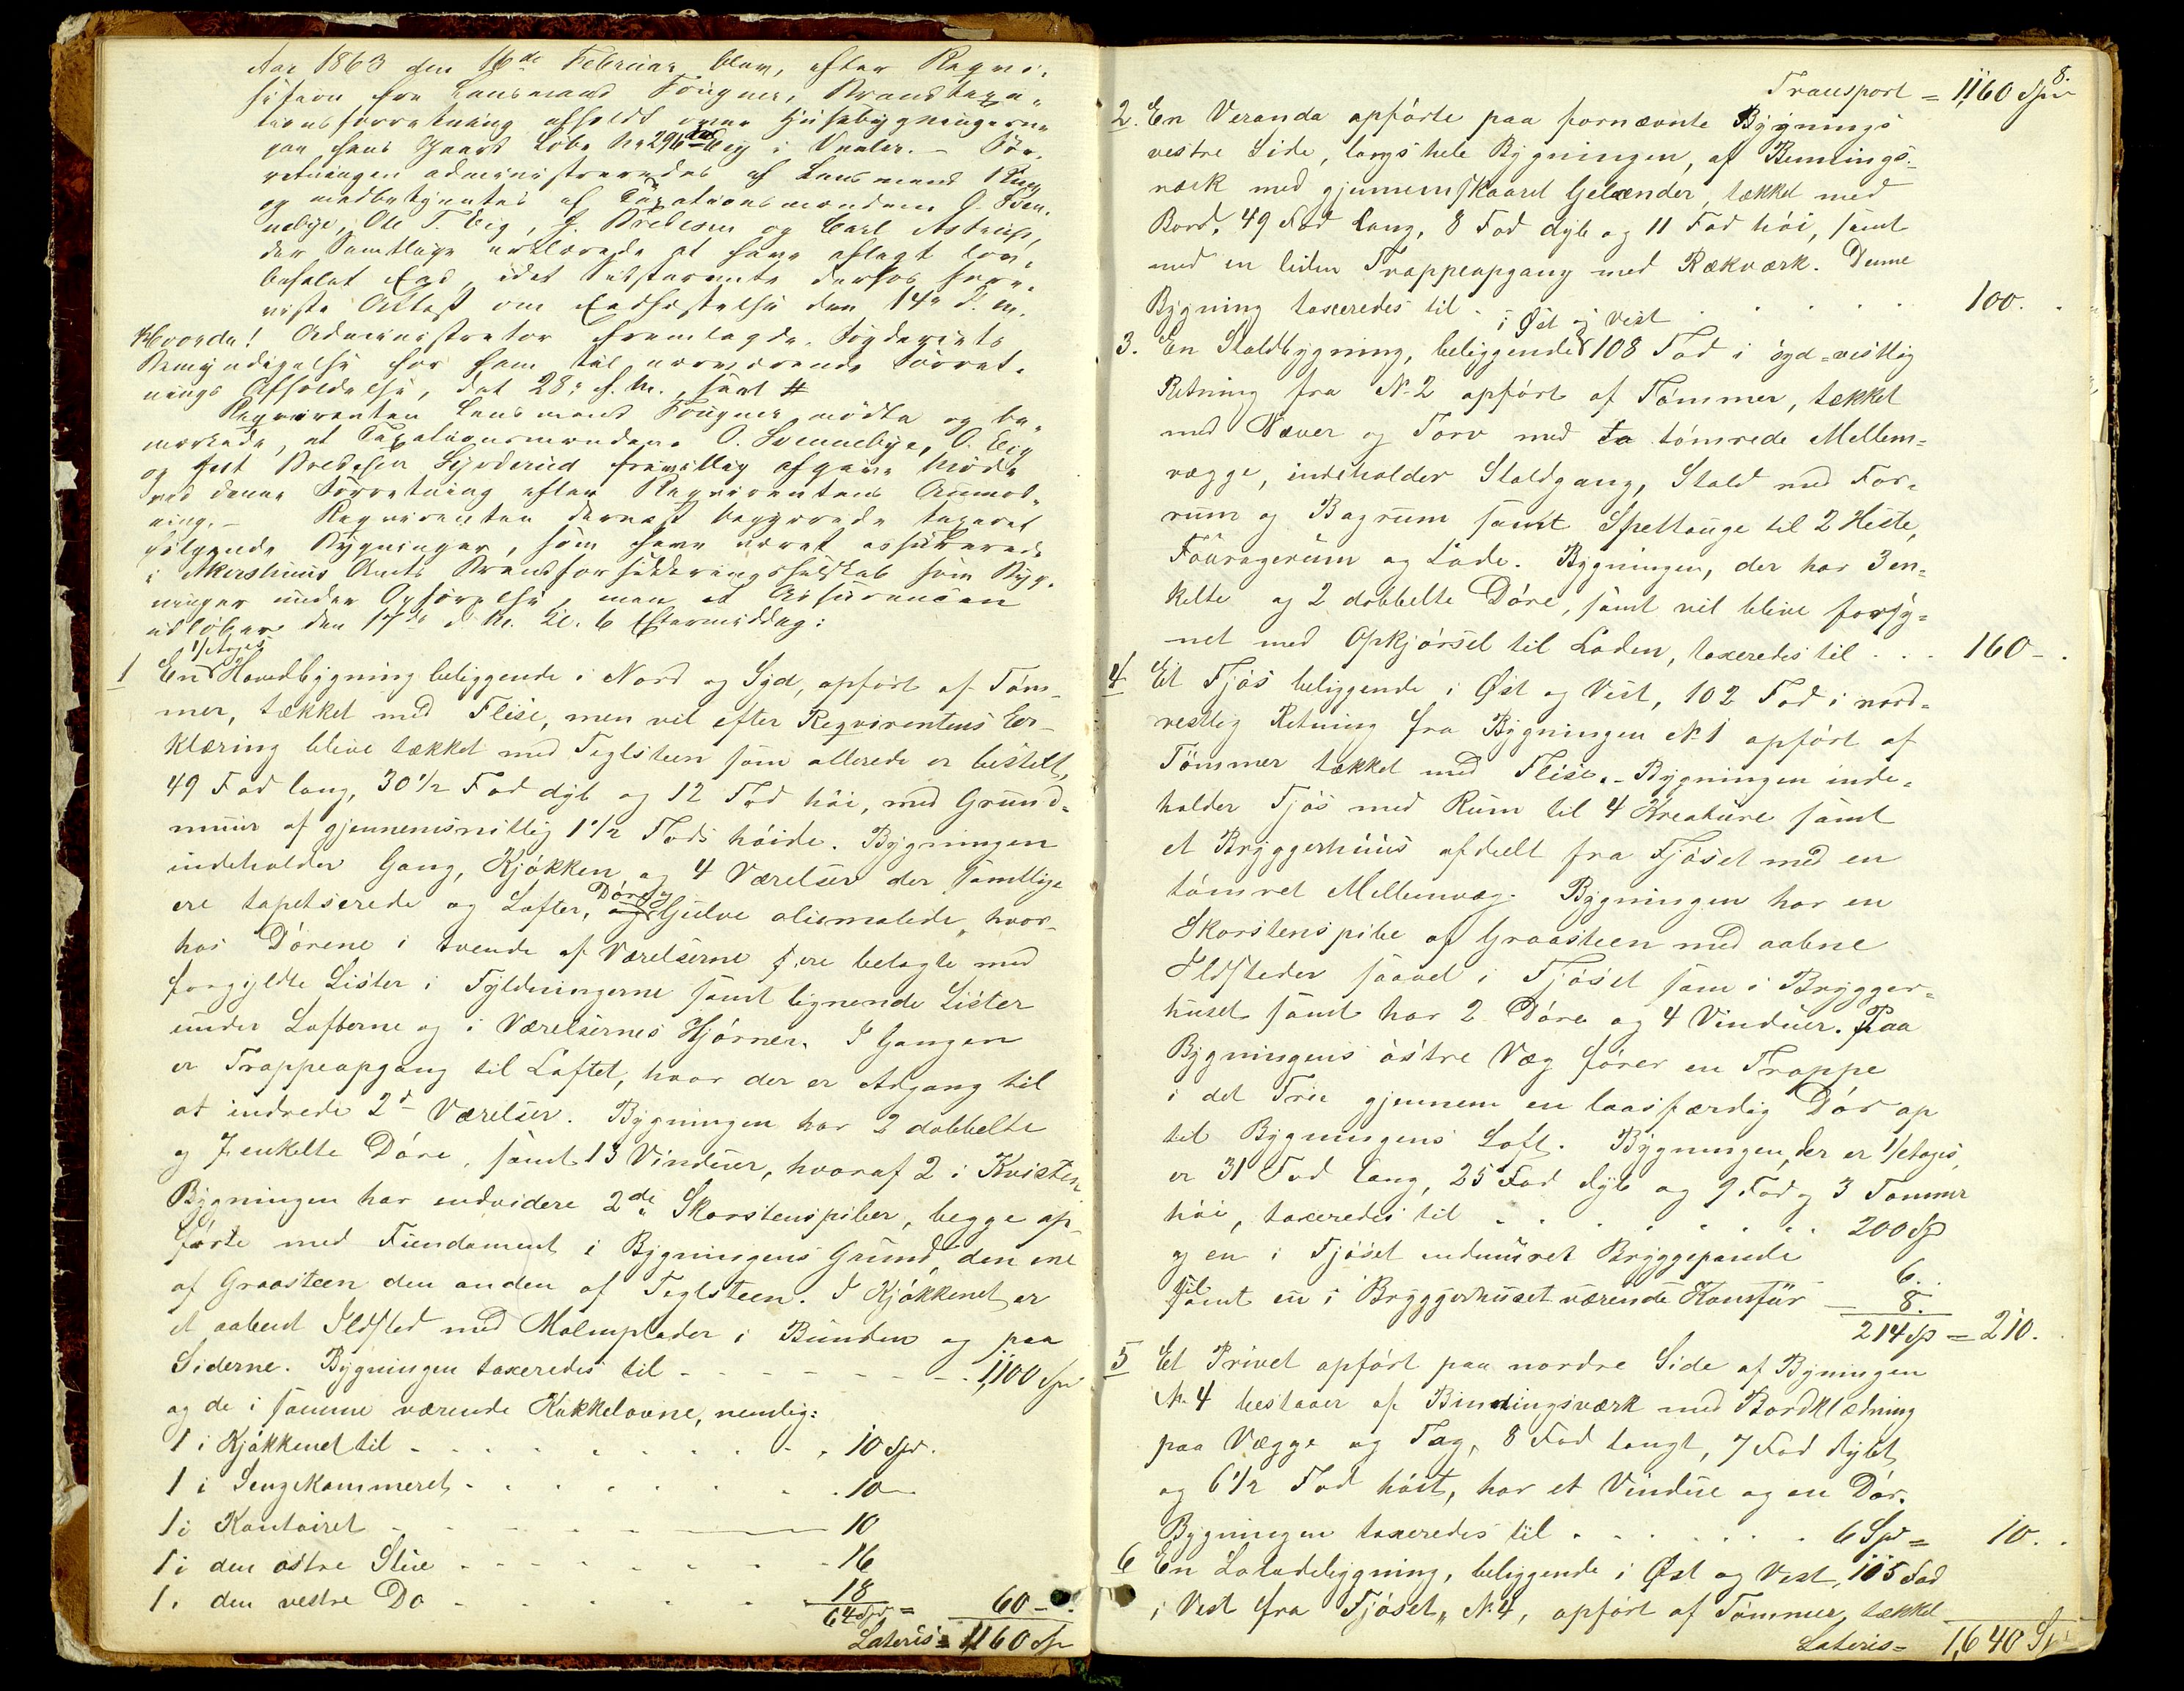 Aar 1863 den 16de Februar blev, efter Reqvi-
sition fra Lensmand Fougner, Brandtaxa-
tionsforretning afholdt over Huusbygningerne
paa hans Gaard Løbe No 296 Eeg i Vaaler. – For-
retningen administreredes af Lensmand
og medbetjentes af Taxationsmændene O. Sven-
nebye, Ole T. Eig, J. Bredesen og Carl Astrup,
der Samtlige erklærede at have aflagt lov-
befalet Eed, idet Sidstnævnte derhos fore-
viste Attest om Eedfæstelse den 14de d. M.
Hvorda! Administrator fremlagde Fogderiets
Bemyndigelse for ham til nærværende Forret-
nings Afholdelse, dat 28. f. M., saal #
Reqvirenten Lensmand Fougner mødte og be-
mærkede, at Taxationsmændene O. Svennebye, O. Eig
og Just Bredesen Sjøderud frivillig afgave Møde
ved denne Forretning efter Reqvirentens Anmod-
ning. – Reqvirenten dernæst begjærede taxeret
følgende Bygninger, som have været assurerede
i Akershuus Amts Brandforsikkringsselskab som Byg-
ninger under Opførelse, men at Assurancen
udløber den 17de d. M. Kl. 6 Eftermiddag:
1/Etages
1 En Hovedbygning beliggende i Nord og Syd, opført af Tøm-
mer, tækket med Flise, men vil efter Reqvirentens Er-
klæring blive tækket med Teglsteen som allerede er bestilt,
49 Fod lang, 30 1/2 Fod dyb og 12 Fod høi, med Grund-
muur af gjennemsnitlig 1 1/2 Fods høide. Bygningen
indeholder Gang, Kjøkken og 4 Værelser der samtlige
Døre og
ere tapetserede og Lofter, og Gulve oliemalede, hvor-
hos Dørene i tvende af Værelserne ere belagte med
forgyldte Lister i Fyldningerne samt lignende Lister
under Lofterne og i Værelsernes Hjørner. I Gangen
er Trappeopgang til Loftet, hvor der er Adgang til
at indrede 2de Værelser. Bygningen har 2 dobbelte
og 7 enkelte Døre, samt 13 Vinduer, hvoraf 2 i Kvisten
Bygningen har endvidere 2de Skorstenspiber, begge op-
førte med Fundament i Bygningens Grund, den ene
af Graasteen den anden af Teglsteen. I Kjøkkenet er
et aabent Ildsted med Malmplader i Bunden og paa
Siderne. Bygningen taxeredes til - - - - - - 1,100 Spd
og de i samme værende Kakkelovne, nemlig:
1 i Kjøkkenet til - - - - - - - 10 Spd.
1 i Sengekammeret - - - - - - - 10
1 i Kontoiret - - - - - - - 10
1 i den østre Stue - - - - - - - 16
1 i den vestre Do - - - - - - - 18
64 Spd = 60 –
Lateris = 1,160 Sp
8.
Transport = 1,160 Spd
2. En Veranda opførte paa fornævnte Bygnings
vestre Side, langs hele Bygningen, af Bennings-
værk med gjennemskaaret Gelænder, tækket med
Bord, 49 Fod lang, 8 Fod dyb og 11 Fod høi, samt
med en liden Trappeopgang med Rækværk. Denne
Bygning taxeredes til - - - - - - 100. .
i Øst og Vest
3. En Staldbygning, beliggende 108 Fod i syd-vestlig
Retning fra No 2 opført af Tømmer, tækket
med Næver og Torv med to tømrede Mellem-
vægge, indeholder Staldgang, Stald med For-
rum og Bagrum samt Spiltauge til 2 Heste,
Fouragerum og Lade. Bygningen, der har 3 en-
kelte og 2 dobbelte Døre, samt vil blive forsy-
net med Opkjørsel til Laden, taxeredes til . . . 160 – .
4 Et Fjøs beliggende i Øst og Vest, 102 Fod i nord-
vestlig Retning fra Bygningen No 1 opført af
Tømmer tækket med Flise. – Bygningen inde-
holder Fjøs med Rum til 4 Kreature samt
et Bryggerhuus afdeelt fra Fjøset med en
tømret Mellemvæg. Bygningen har en
Skorstenspibe af Graasteen med aabne
Ildsteder saavel i Fjøset som i Brygger-
huset samt har 2 Døre og 4 Vinduer. Paa
Bygningens østre Væg fører en Trappe
i det Frie gjennem en laasfærdig Dør op
til Bygningens Loft. Bygningen, der er 1/etages,
er 31 Fod lang, 25 Fod dyb og 9 Fod og 3 Tommer
høi, taxeredes til . . . . . . . . 200 Sp
og en i Fjøset indmuuret Bryggepande 6. .
til
samt en i Bryggerhuset værende Komfur 8.
214 Sp = 210.
5 Et Privet opført paa nordre Side af Bygningen
No 4 bestaaer af Bindingsværk med Bordklædning
paa Vægge og Tag, 8 Fod langt, 7 Fod dybt
og 6 1/2 Fod høit, har et Vindue og en Dør.
Bygningen taxeredes til . . . . . . 6 Spd = 10. .
6 En Ladebygning, beliggende i Øst og Vest, 105 Fod
i Vest fra Fjøset, No 4, opført af Tømmer, tækket
Lateris = 1,640 Sp